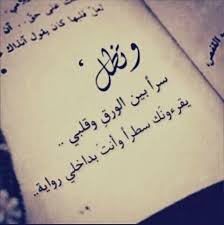 لِمَنْ قلبها كان يقول
وتظل ،
سراً بين الورقِ وقلبي ..
يقرءونك سطراً وأنت بداخلي رواية ..